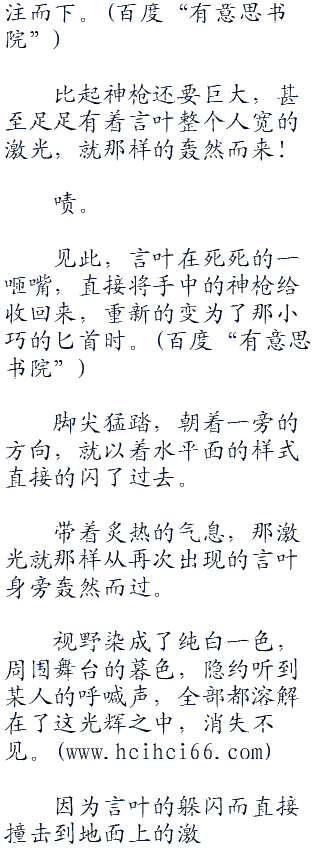 注而下。(百度“有意思书
院”)
比起神枪还要巨大，甚
至足足有着言叶整个人宽的
激光，就那样的轰然而来！
啧。
见此，言叶在死死的一
咂嘴，直接将手中的神枪给
收回来，重新的变为了那小
巧的匕首时。(百度“有意思
书院”)
脚尖猛踏，朝着一旁的
方向，就以着水平面的样式
直接的闪了过去。
带着炙热的气息，那激
光就那样从再次出现的言叶
身旁轰然而过。
视野染成了纯白一色，
周围舞台的暮色，隐约听到
某人的呼喊声，全部都溶解
在了这光辉之中，消失不
见。(www.hcihci66.com)
因为言叶的躲闪而直接
撞击到地面上的激